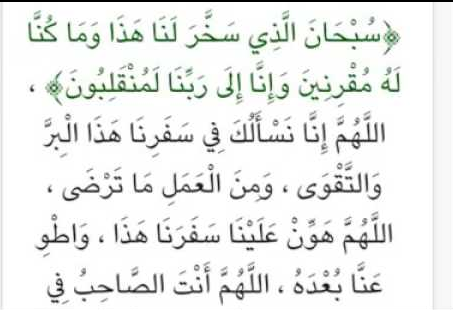 ﴿سُبْحَانَ الَّذِي سَخَّرَ لَنَا هَذَا وَمَا كُنَّا
لَهُ مُقْرِنِينَ وَإِنَّا إِلَى رَبِّنَا لَمُنْقَلِبُونَ﴾ ،
اللَّهُمَّ إِنَّا نَسْأَلُكَ فِي سَفَرِنَا هَذَا الْبِرَّ
وَالتَّقْوَى ، وَمِنَ الْعَمَلِ مَا تَرْضَى ،
اللَّهُمَّ هَوِّنْ عَلَيْنَا سَفَرَنَا هَذَا ، وَاطْوِ
عَنَّا بُعْدَهُ ، اللَّهُمَّ أَنْتَ الصَّاحِبُ فِي